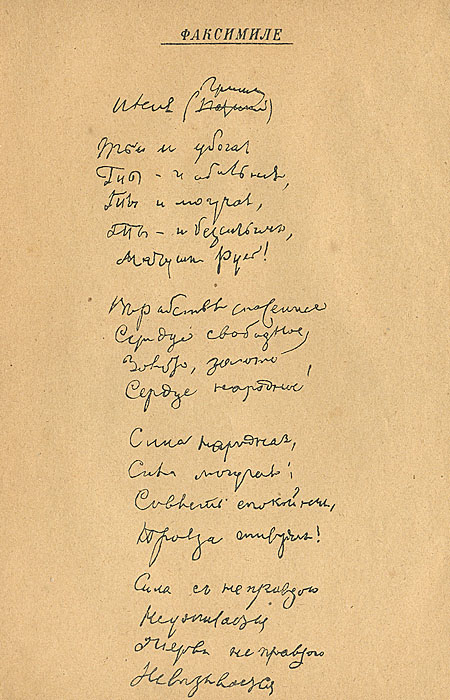 ФАКСИМИЛЕ
Гриши
Песня
Ты и убогая
Ты - и обильная,
Ты и могучая,
Ты - и безсильная,
Матушка Русь!
Въ рабствѣ спасенное
Сердце свободное,
Золото, золото
Сердце народное!
Сила народная,
Сила могучая!
Совѣсть спокойная,
Правда живучая!
Сила съ неправдою
Неуживается
Жертва неправдою
Невызывается